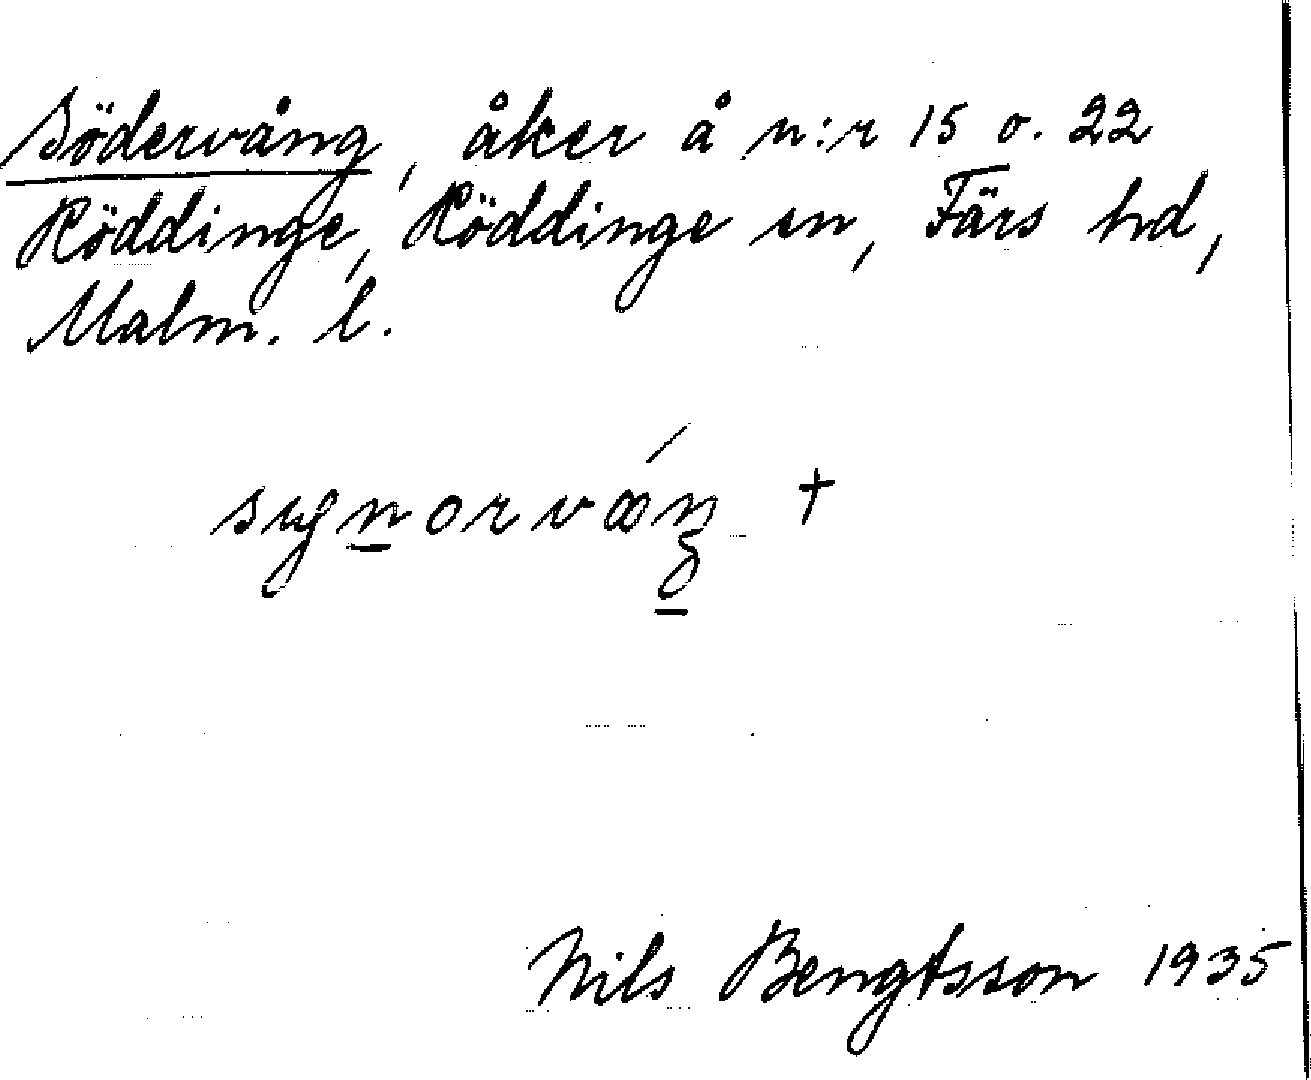 Södervång, åker å n:r 15 o. 22
Röddinge, Röddinge sn, Färs hd,
Malm. l.
Nils Bengtsson 1935